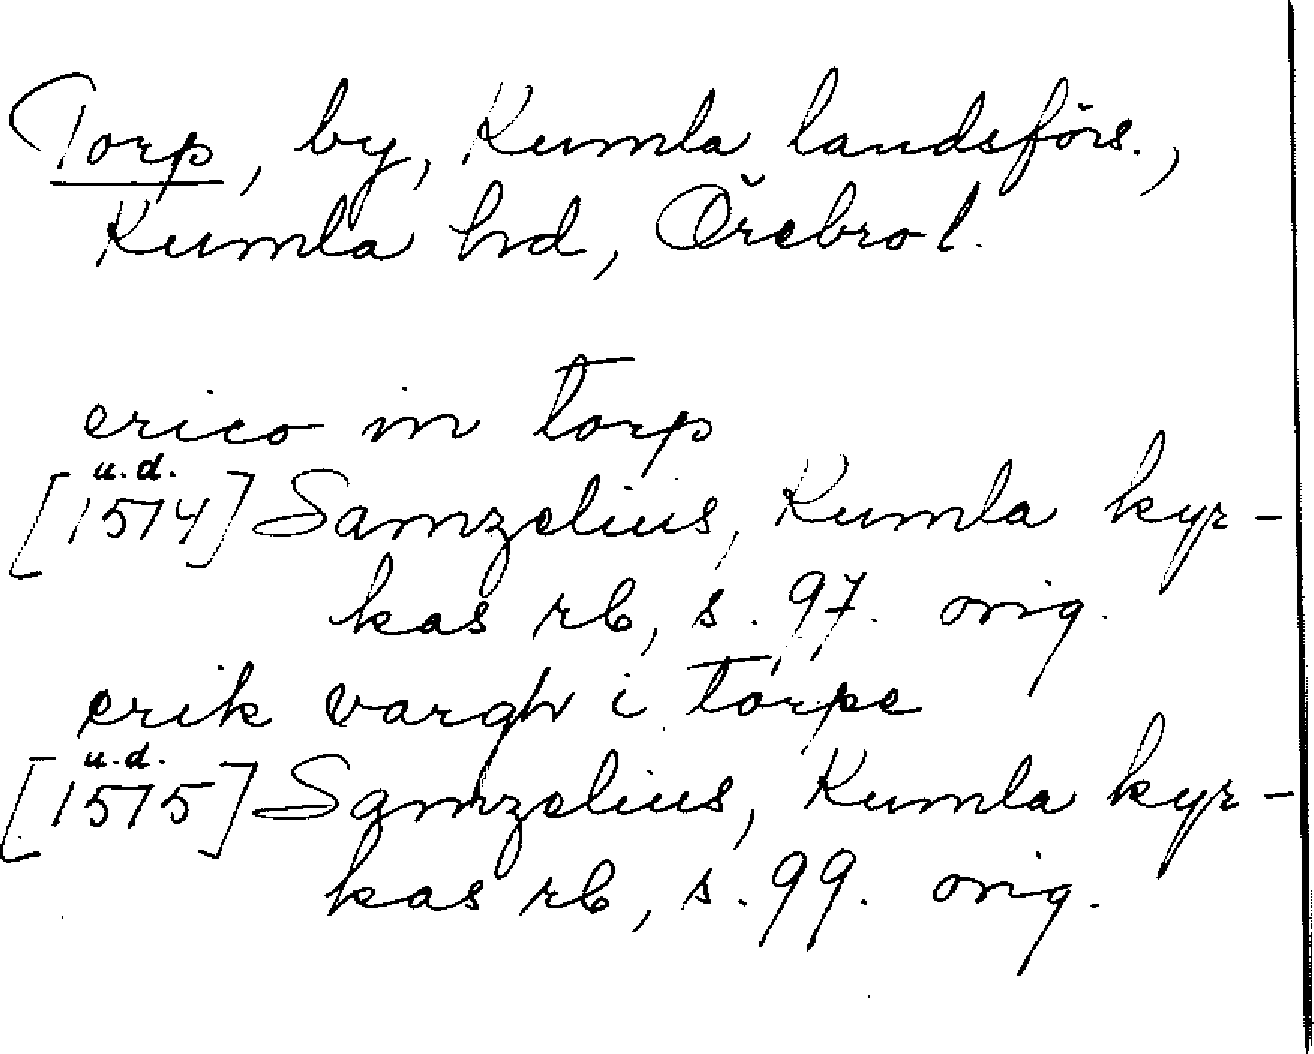 Torp, by, Kumla landsförs.,
Kumla hd, Örebro l.
erico in torp
u.d.
[1574] Samzelius, Kumla kyr-
kas rb, s. 97. orig.
erik vargh i torpe
u.d.
[1575] Samzelius, Kumla kyr-
kas rb, s. 99. orig.